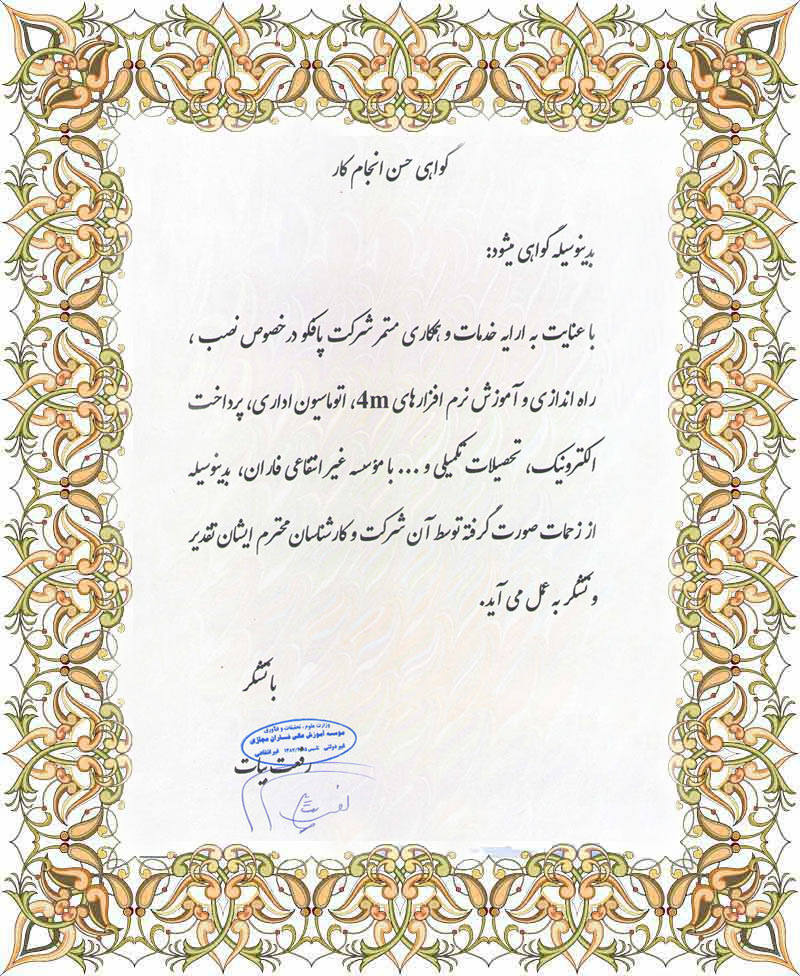 گواهی حسن انجام کار
بدینوسیله گواهی میشود:
با عنایت به ارایه خدمات و همکاری مستمر شرکت پافکو در خصوص نصب ،
راه اندازی و آموزش نرم افزارهای 4m، اتوماسیون اداری، پرداخت
الکترونیک، تحصیلات تکمیلی و ... با مؤسسه غیر انتفاعی فاران، بدینوسیله
از زحمات صورت گرفته توسط آن شرکت و کارشناسان محترم ایشان تقدیر
و تشکر به عمل می آید.
با تشکر
وزارت علوم، تحقیقات و فناوری
موسسه آموزش عالی فاران مجازی
غیر دولتی تاسیس غیرانتفاعی
رفعت بیات